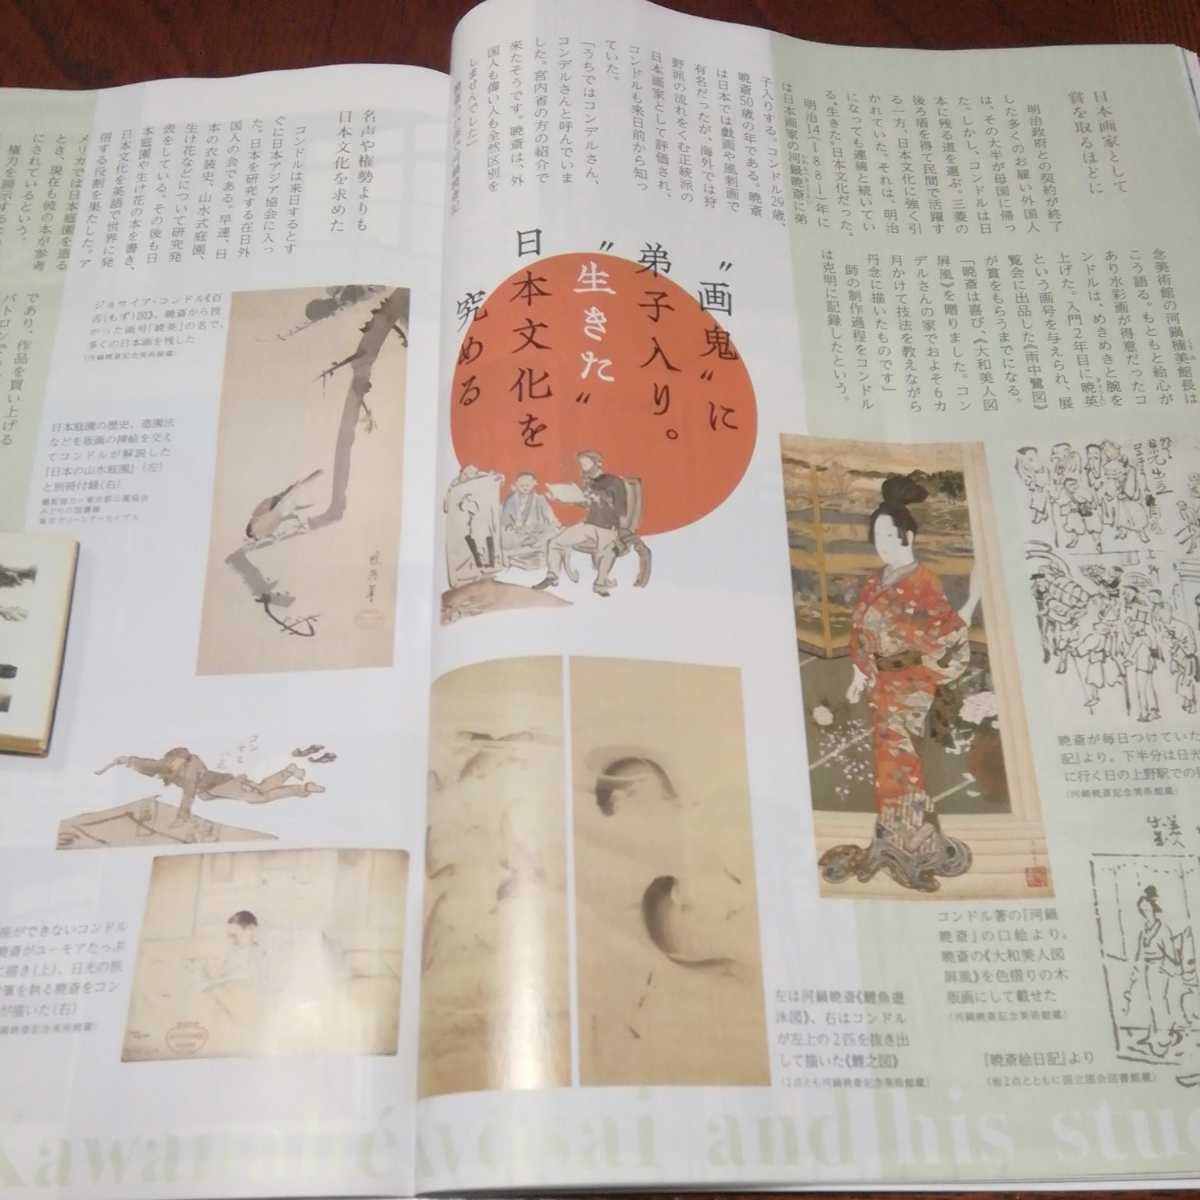 日本画家として
賞を取るほどに
明治政府との契約が終了
した多くのお雇い外国人
は、その大半が母国に帰っ
た。しかし、コンドルは日
本に残る道を選ぶ。三菱の
後ろ盾を得て民間で活躍す
る一方、日本文化に強く引
かれていた。それは、明治
になっても連綿と続いてい
る〝生きた〟日本文化だった。
明治14(1881)年に
は日本画家の河鍋暁斎に弟
子入りする。コンドル29歳、
暁斎50歳の年である。暁斎
は日本では戯画や風刺画で
有名だったが、海外では狩
野派の流れをくむ正統派の
日本画家として評価され、
コンドルも来日前から知っ
ていた。
「うちではコンデルさん、
コンデルさんと呼んでいま
した。宮内省の方の紹介で
来たそうです。暁斎は、外
国人も偉い人も全然区別を
しませんでした」
念美術館の河鍋楠美館長は
こう語る。もともと絵心が
あり水彩画が得意だったコ
ンドルは、めきめきと腕を
上げた。入門2年目に暁英
という画号を与えられ、展
覧会に出品した《雨中鷺図》
が賞をもらうまでになる。
「暁斎は喜び、《大和美人図
屏風》を贈りました。コン
デルさんの家でおよそ6カ
月かけて技法を教えながら
丹念に描いたものです」
師の創作過程をコンドル
は克明に記録したという。
〝画鬼〟に
弟子入り。
〝生きた〟
日本文化を
究める
名声や権勢よりも
日本文化を求めた
コンドルは来日するとす
ぐに日本アジア協会に入っ
た。日本を研究する在日外
国人の会である。早速、日
本の衣装史、山水式庭園、
生け花などについて研究発
表をしている。その後も日
本庭園や生け花の本を書き、
日本文化を英語で世界に発
信する役割を果たした。ア
メリカでは日本庭園を造る
とき、現在も彼の本が参考
にされているという。
であり、作品を買い上げる
ジョサイア・コンドル《百
舌(もず)図》。暁斎から授
かった画号「暁英」の名で、
多くの日本画を残した
(河鍋暁斎記念美術館蔵)
日本庭園の歴史、造園法
などを版画の挿絵を交え
てコンドルが解説した
『日本の山水庭園』(左)
と別冊付録(右)
コンデル
座ができないコンドル
暁斎がユーモアたっぷ
に描き(上)、日光の旅
筆を執る暁斎をコン
が描いた(右)
左は河鍋暁斎《鯉魚遊
泳図》、右はコンドル
が左上の2匹を抜き出
して描いた《鯉之図》
(2点とも河鍋暁斎記念美術館蔵)
暁斎が毎日つけていた
記』より。下半分は日光
に行く日の上野駅での
(河鍋暁斎記念美術館蔵)
コンドル著の『河鍋
暁斎』の口絵より。
暁斎の《大和美人図
屏風》を色摺りの木
版画にして載せた
(河鍋暁斎記念美術館蔵)
『暁斎絵日記』より
(他2点とともに国立国会図書館蔵)
Kawanabe Kyosai and his stu